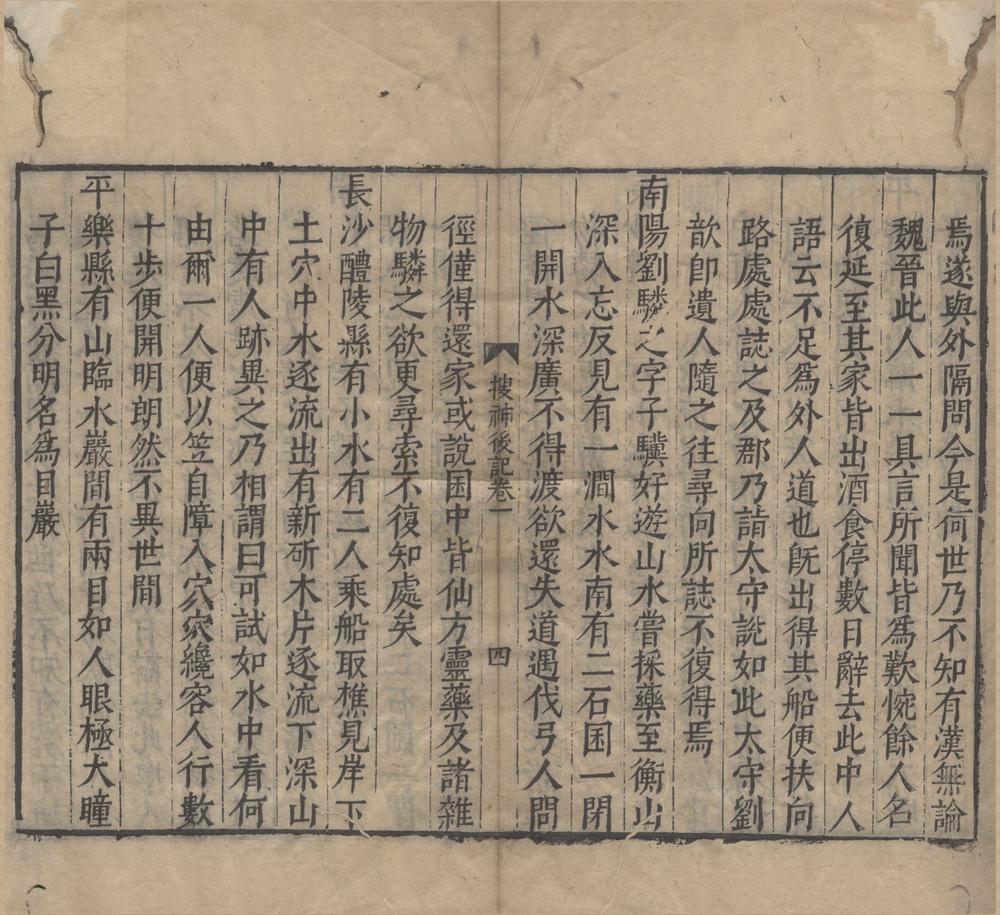 焉遂與外隔問今是何世乃不知有漢無論
魏晉此人一一具言所聞皆爲歎惋餘人各
復延至其家皆出酒食停數日辭去此中人
語云不足爲外人道也旣出得其船便扶向
路處處誌之及郡乃詣太守說如此太守劉
歆卽遣人隨之往尋向所誌不復得焉
南陽劉驎之字子驥好遊山水嘗採藥至衡山
深入忘反見有一澗水水南有二石囷一閉
一開水深廣不得渡欲還失道遇伐弓人問
搜神後記卷一
四
徑僅得還家或說囷中皆仙方靈藥及諸雜
物驎之欲更尋索不復知處矣
長沙醴陵縣有小水有二人乘船取樵見岸下
土穴中水逐流出有新斫木片逐流下深山
中有人跡異之乃相謂曰可試如水中看何
由爾一人便以笠自障入穴穴纔容人行數
十步便開明朗然不異世間
平樂縣有山臨水巖間有兩目如人眼極大瞳
子白黑分明名爲目巖